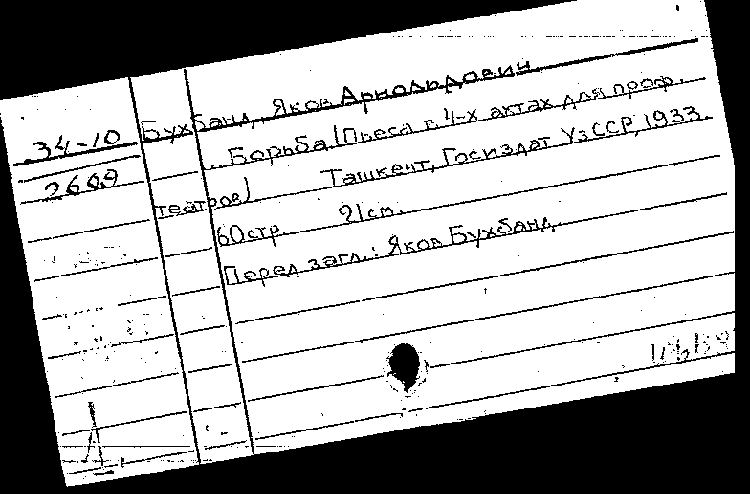 34-10
2669
Бухбанд, Яков Арнольдович
... Борьба (Пьеса в 4-х актах для проф.
театров) Ташкент, Госиздат УзССР, 1933.
60стр. 21см.
Перед загл.: Яков Бухбанд.